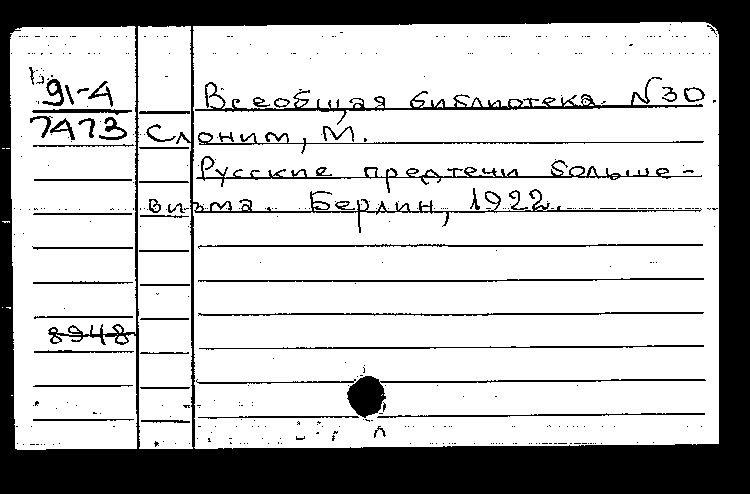 В 91-4
7473
Всеобщая библиотека. N30.
Слоним, М.
Русские предтечи больше-
визма. Берлин, 1922.
8948